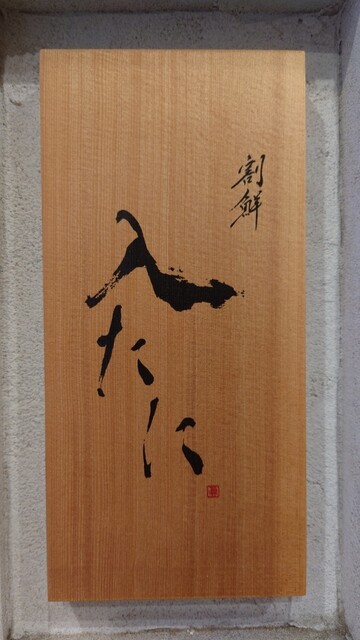 割鮮
入たに